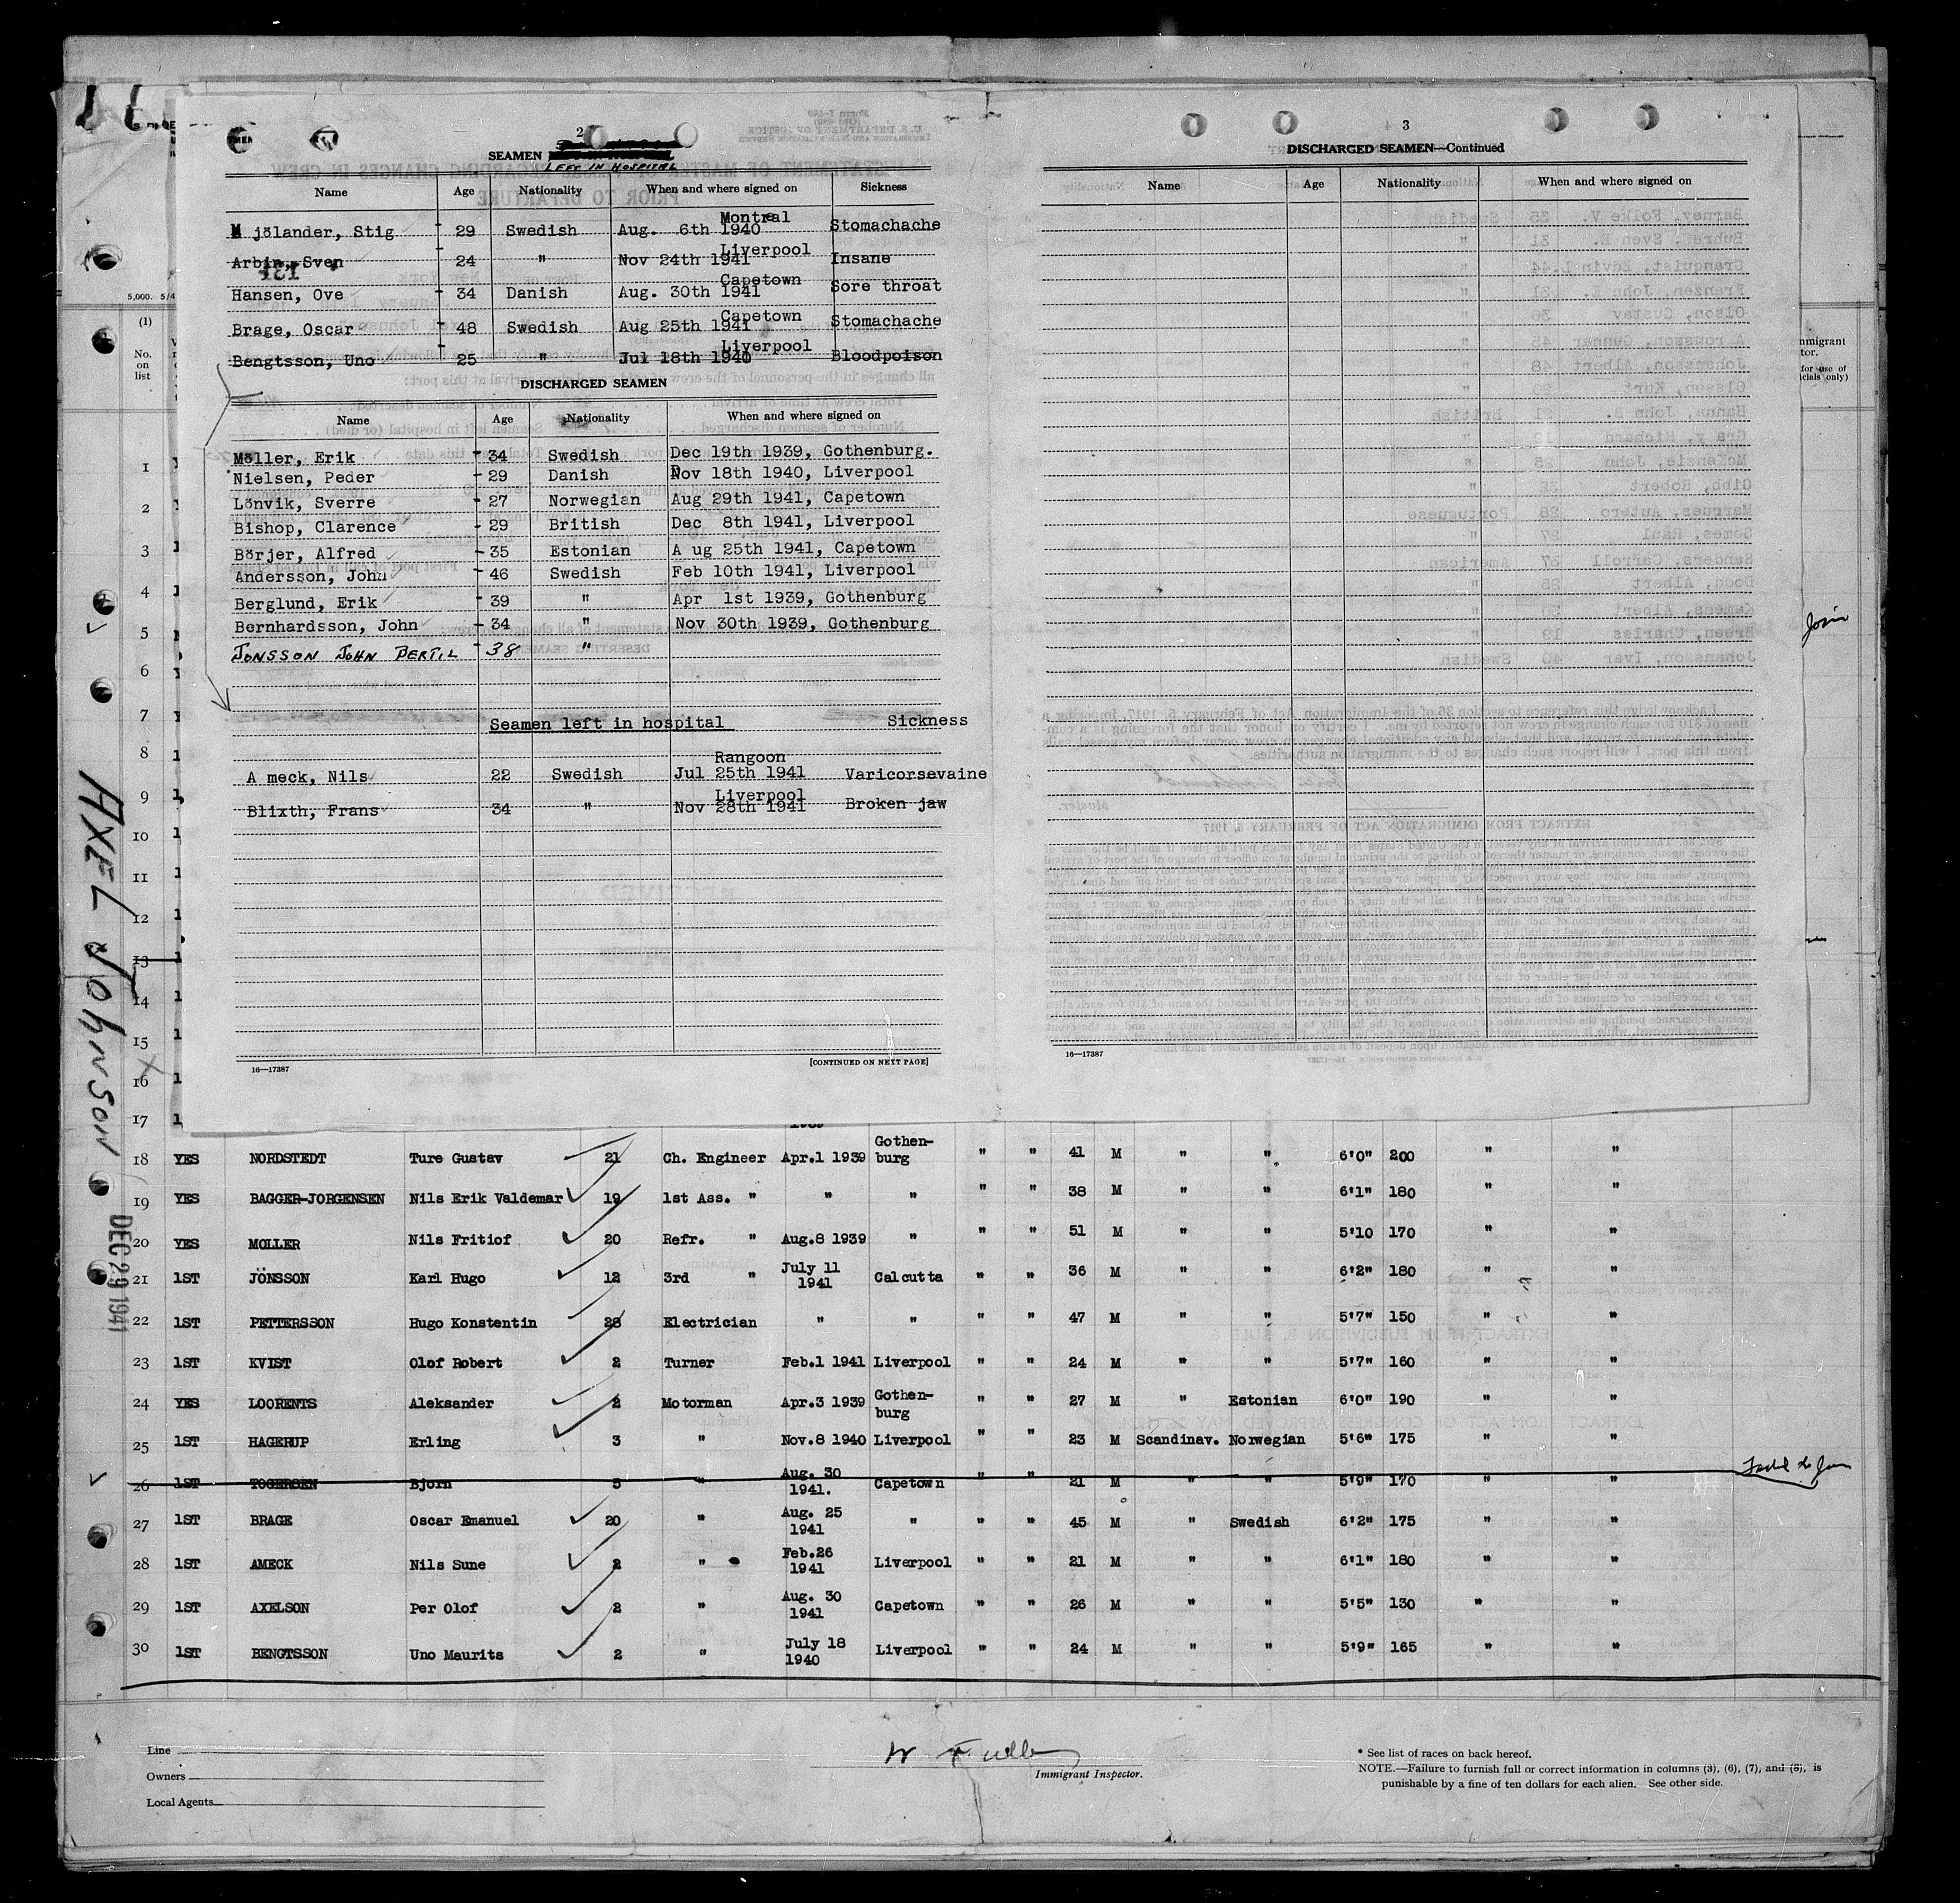 2
SEAMEN LEFT IN HOSPITAL
Name Age Nationality When and where signed on Sickness
Mjölander, Stig 29 Swedish Aug. 6th 1940 Montreal Stomachache
Arbin, Sven 24 " Nov 24th 1941 Liverpool Insane
Hansen, Ove 34 Danish Aug. 30th 1941 Capetown Sore throat
Brage, Oscar 48 Swedish Aug 25th 1941 Capetown Stomachache
Bengtsson, Uno 25 " Jul 18th 1940 Liverpool Bloodpoison
DISCHARGED SEAMEN
Name Age Nationality When and where signed on
Möller, Erik 34 Swedish Dec 19th 1939, Gothenburg.
Nielsen, Peder 29 Danish Nov 18th 1940, Liverpool
Lönvik, Sverre 27 Norwegian Aug 29th 1941, Capetown
Bishop, Clarence 29 British Dec 8th 1941, Liverpool
Börjer, Alfred 35 Estonian A ug 25th 1941, Capetown
Andersson, John 46 Swedish Feb 10th 1941, Liverpool
Berglund, Erik 39 " Apr 1st 1939, Gothenburg
Bernhardsson, John 34 " Nov 30th 1939, Gothenburg
JONSSON JOHN BERTIL 38 "
Seamen left in hospital Sickness
A meck, Nils 22 Swedish Rangoon Jul 25th 1941 Varicorsevaine
Blixth, Frans 34 " Liverpool Nov 28th 1941 Broken jaw
[CONTINUED ON NEXT PAGE]
16—17387
3
DISCHARGED SEAMEN—Continued
Name Age Nationality When and where signed on
16—17387
5,000. 5/4
(1)
No.
on
list
1
2
3
4
5
6
7
8
9
10
11
12
13
14
15
16
17
AXEL JOHNSON
DEC 29 1941
18 YES NORDSTEDT Ture Gustav 21 Ch. Engineer Apr.1 1939 Gothen-burg " " 41 M " " 6'0" 200 " "
19 YES BAGGER-JORGENSEN Nils Erik Valdemar 19 1st Ass. " " " " " 38 M " " 6'1" 180 " "
20 YES MOLLER Nils Fritiof 20 Refr. " Aug.8 1939 " " " 51 M " " 5'10 170 " "
21 1ST JÖNSSON Karl Hugo 12 3rd " July 11 1941 Calcutta " " 36 M " " 6'2" 180 " "
22 1ST PETTERSSON Hugo Konstentin 28 Electrician " " " " 47 M " " 5'7" 150 " "
23 1ST KVIST Olof Robert 2 Turner Feb.1 1941 Liverpool " " 24 M " " 5'7" 160 " "
24 YES LOORENTS Aleksander 2 Motorman Apr.3 1939 Gothen-burg " " 27 M " Estonian 6'0" 190 " "
25 1ST HAGERUP Erling 3 " Nov.8 1940 Liverpool " " 23 M Scandinav. Norwegian 5'6" 175 " "
26 1ST TOGERSEN Bjorn 5 " Aug. 30 1941. Capetown " " 21 M " " 5'9" 170 " "
27 1ST BRAGE Oscar Emanuel 20 " Aug. 25 1941 " " " 45 M " Swedish 6'2" 175 " "
28 1ST AMECK Nils Sune 2 " Feb.26 1941 Liverpool " " 21 M " " 6'1" 180 " "
29 1ST AXELSON Per Olof 2 " Aug. 30 1941 Capetown " " 26 M " " 5'5" 130 " "
30 1ST BENGTSSON Uno Maurits 2 " July 18 1940 Liverpool " " 24 M " " 5'9" 165 " "
Line
Owners
Local Agents
Immigrant Inspector.
* See list of races on back hereof.
NOTE.—Failure to furnish full or correct information in columns (3), (6), (7), and (8), is
punishable by a fine of ten dollars for each alien. See other side.